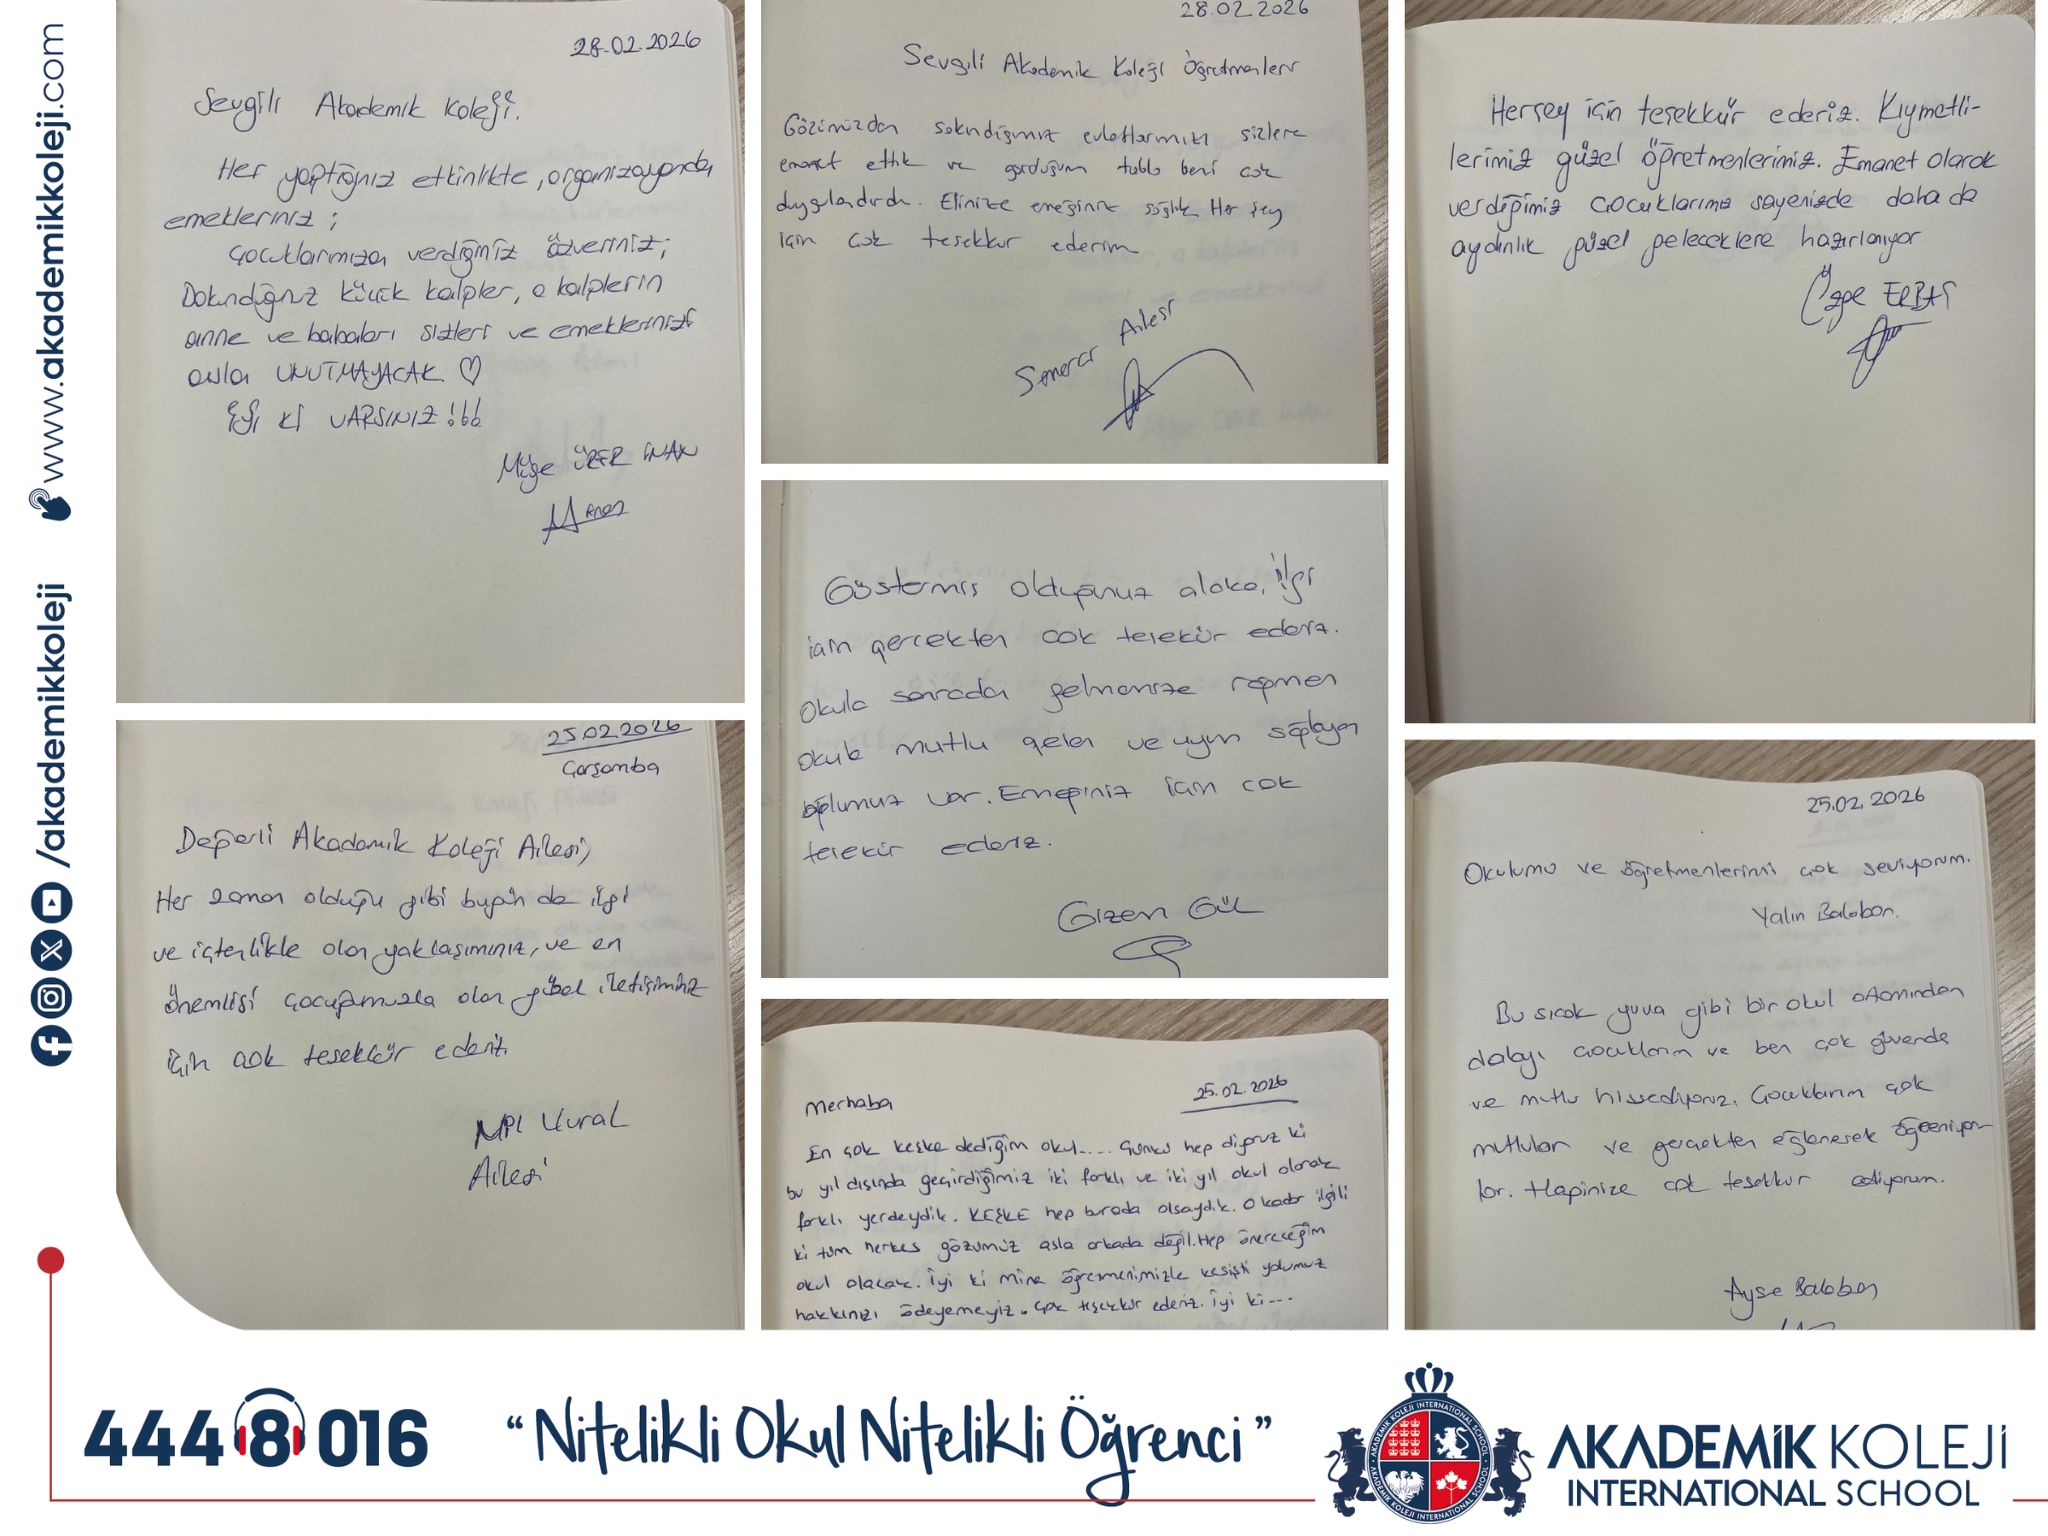 www.akademikkoleji.com
/akademikkoleji
28.02.2026
Sevgili Akademik Koleji.
Her yaptığınız etkinlikte, organizasyonda
emekleriniz;
çocuklarımıza verdiğiniz özveriniz;
Dokunduğunuz küçük kalpler, o kalplerin
anne ve babaları sizleri ve emeklerinizi
asla UNUTMAYACAK ♡
İyi ki VARSINIZ!!!
Müge ÜRER İNAN
25.02.2026
Çarşamba
Değerli Akademik Koleji Ailesi,
Her zaman olduğu gibi bugün de ilgi
ve içtenlikle olan yaklaşımınız, ve en
önemlisi çocuğumuzla olan güzel iletişiminiz
için çok teşekkür ederiz.
Vural
Ailesi
28.02.2026
Sevgili Akademik Koleji Öğretmenleri
Gözümüzden sakındığımız evlatlarımızı sizlere
emanet ettik ve gördüğüm tablo beni çok
duygulandırdı. Elinize emeğinize sağlık Her şey
için çok teşekkür ederim
Ailesi
Göstermiş olduğunuz alaka, ilgi
için gerçekten çok teşekür ederiz.
Okula sonradan gelmemize rağmen
okula mutlu gelen ve uyum sağlayan
oğlumuz var. Emeğiniz için çok
teşekür ederiz.
Gizem Gül
Merhaba
25.02.2026
En çok keşke dediğim okul..... Çünkü hep diyoruz ki
bu yıl dışında geçirdiğimiz iki farklı ve iki yıl okul olarak
farklı yerdeydik. KEŞKE hep burada olsaydık. O kadar ilgili
ki tüm herkes gözümüz asla arkada değil. Hep önereceğim
okul olacak. İyi ki mine öğretmenimizle kesişti yolumuz
hakkınızı ödeyemeyiz. Çok teşekkür ederiz. İyi ki ...
Herşey için teşekkür ederiz. Kıymetli-
lerimiz güzel öğretmenlerimiz. Emanet olarak
verdiğimiz çocuklarımız sayenizde daha da
aydınlık güzel geleceklere hazırlanıyor
Özge ERBAŞ
25.02.2026
Okulumu ve öğretmenlerimi çok seviyorum.
Yalın Balaban.
Bu sıcak yuva gibi bir okul ortamından
dolayı çocuklarım ve ben çok güvende
ve mutlu hissediyoruz. Çocuklarım çok
mutlular ve gerçekten eğlenerek öğreniyor
lar. Hepinize çok teşekkür ediyorum.
Ayşe Balaban
444 8 016
“Nitelikli Okul Nitelikli Öğrenci”
AKADEMİK KOLEJİ
INTERNATIONAL SCHOOL
AKADEMİK KOLEJİ INTERNATIONAL SCHOOL
AKADEMİK KOLEJİ INTERNATIONAL SCHOOL